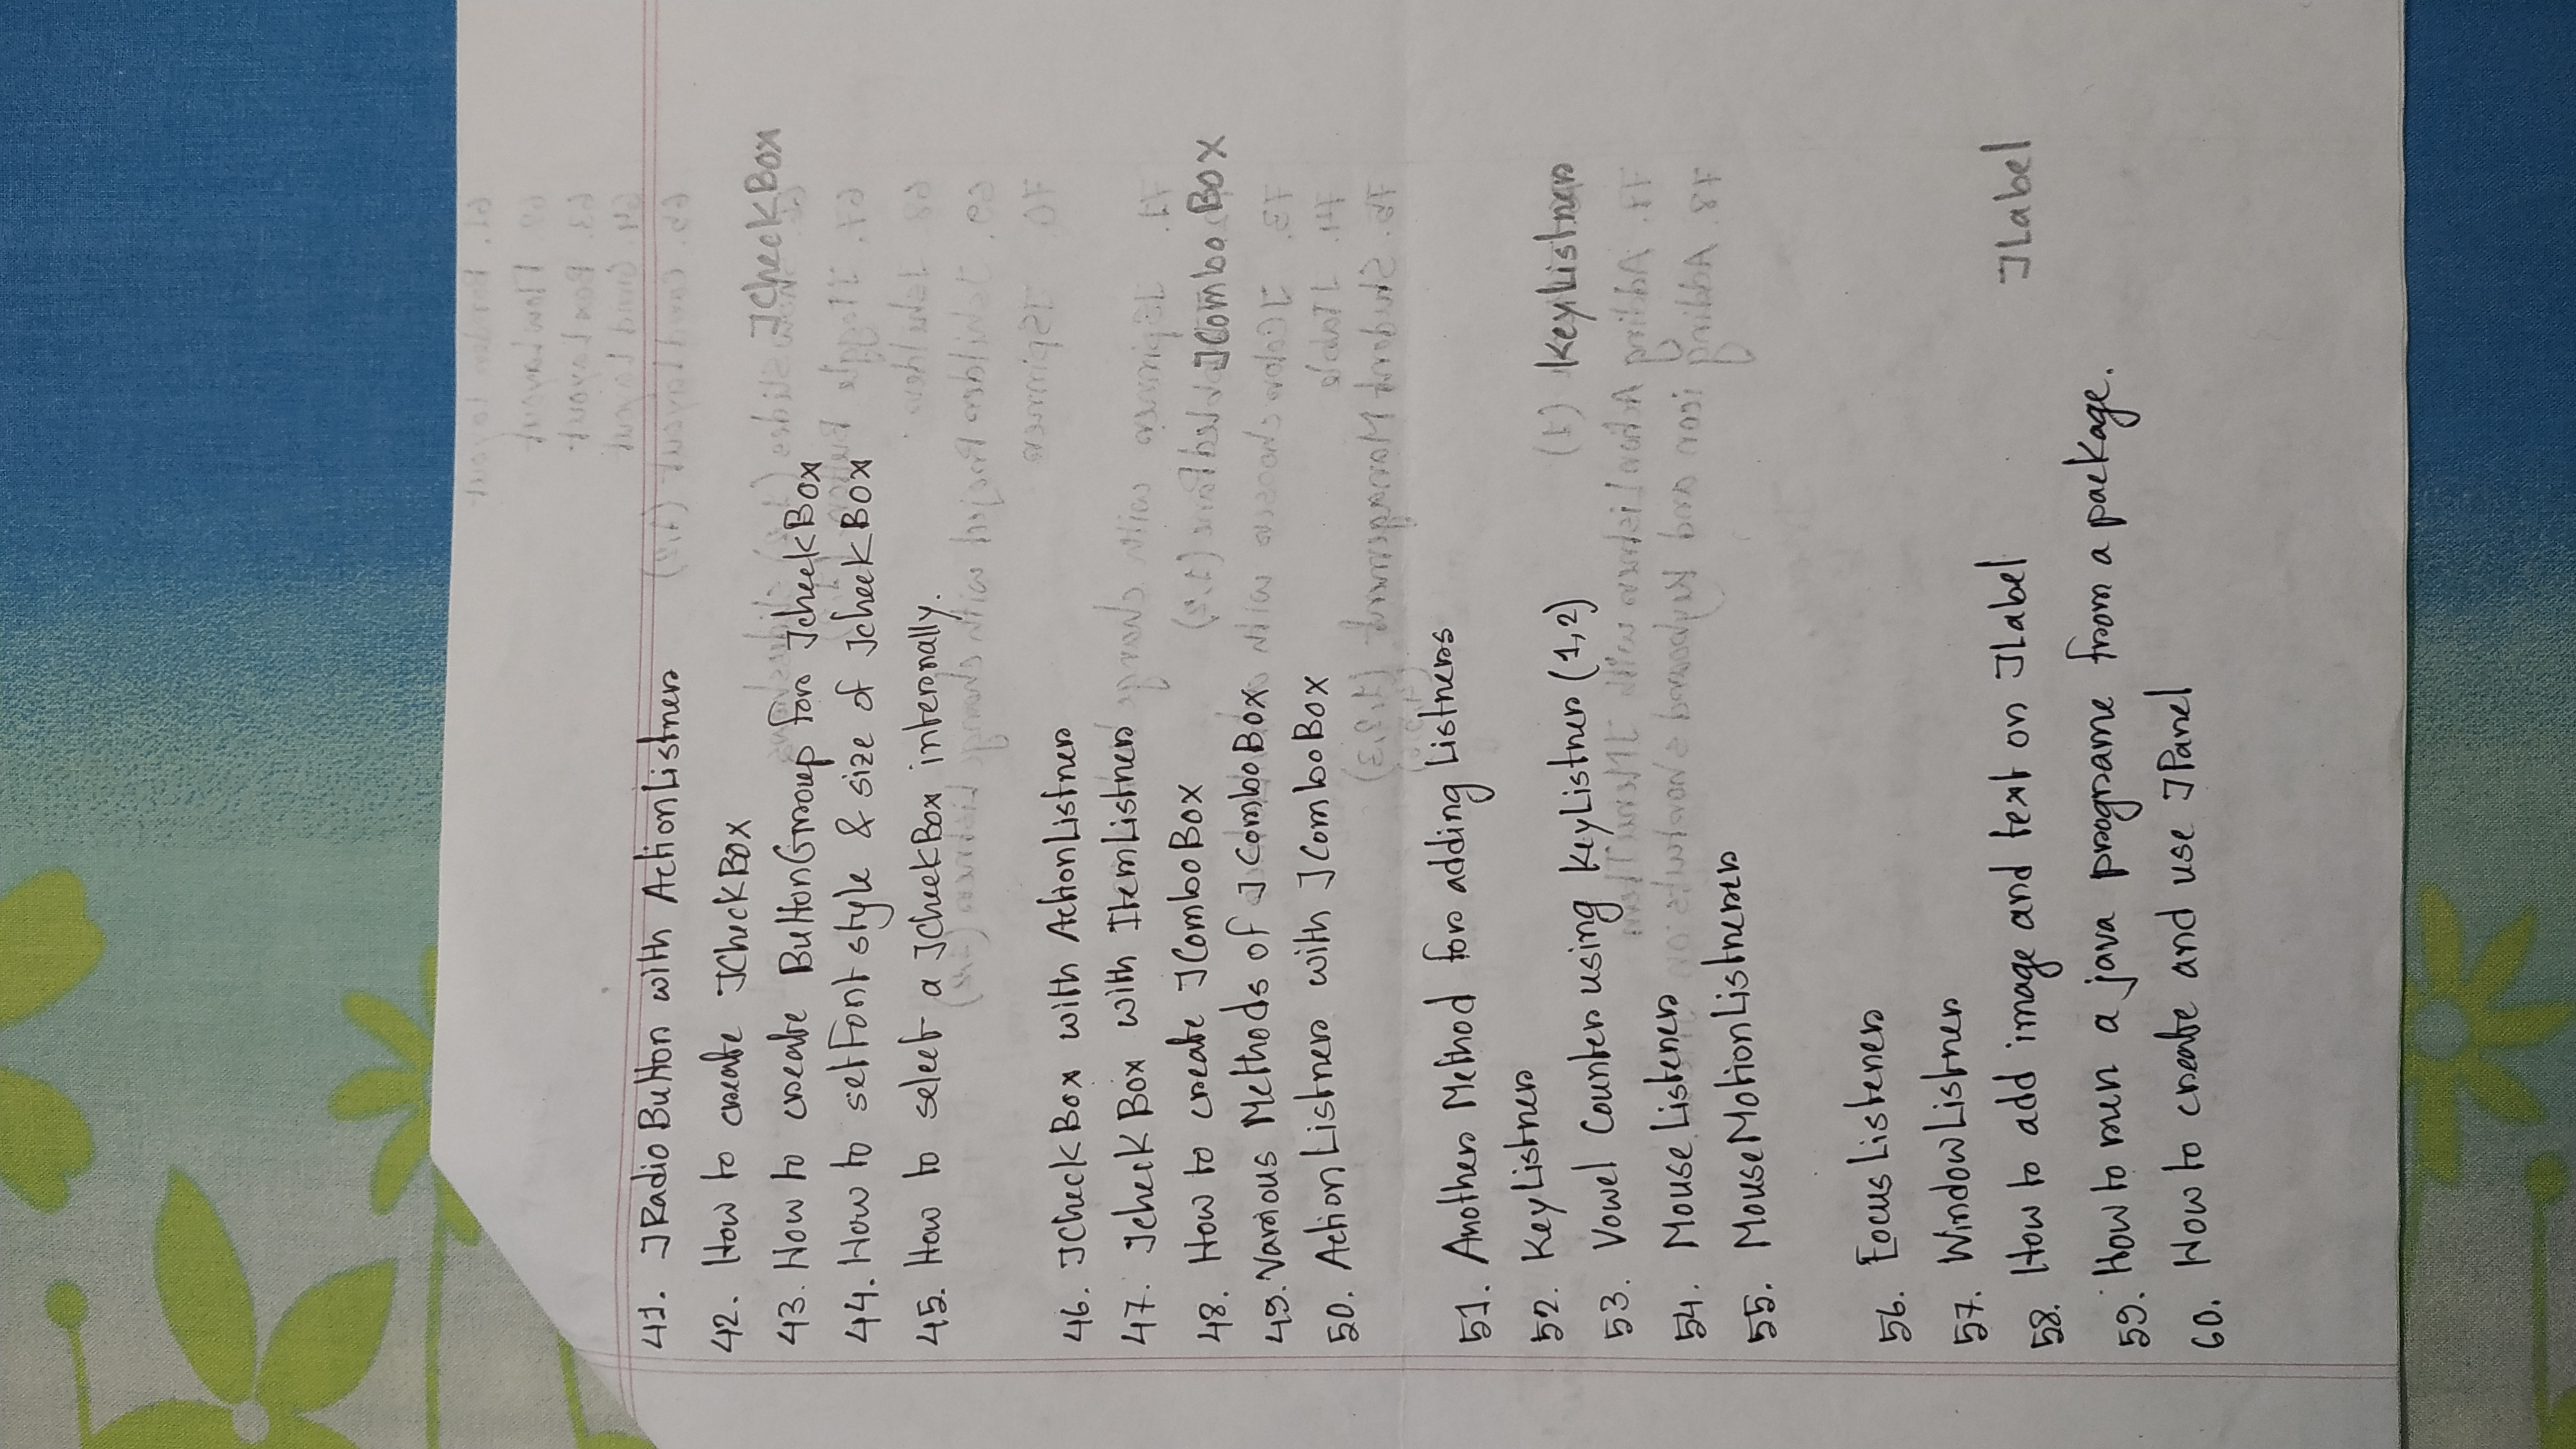 41. JRadioButton with ActionListner
42. How to create JCheckBox
JCheckBox
43. How to create ButtonGroup for JcheckBox
44. How to setFont style & size of JcheckBox
45. How to select a JCheckBox internally.
46. JCheckBox with ActionListner
47. JcheckBox with ItemListner
48. How to create JComboBox
JCombo Box
49. Various Methods of JComboBox
50. ActionListner with JComboBox
51. Another Method for adding Listners
52. KeyListner
53. Vowel Counter using KeyListner (1,2)
KeyListner
54. MouseListener
55. MouseMotionListnerer
56. FocusListener
57. WindowListner
58. How to add image and text on JLabel
JLabel
59. How to run a java programe from a package.
60. How to create and use JPanel